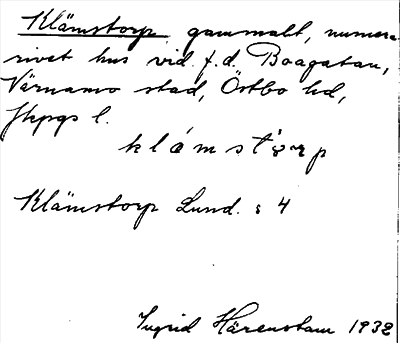 Klämstorp gammalt, numera
rivet hus vid f.d. Boagatan,
Värnamo stad, Östbo hd,
Jkpgs l.
klámstòrp
Klämstorp Lund. s 4
Ingrid Härenstam 1932